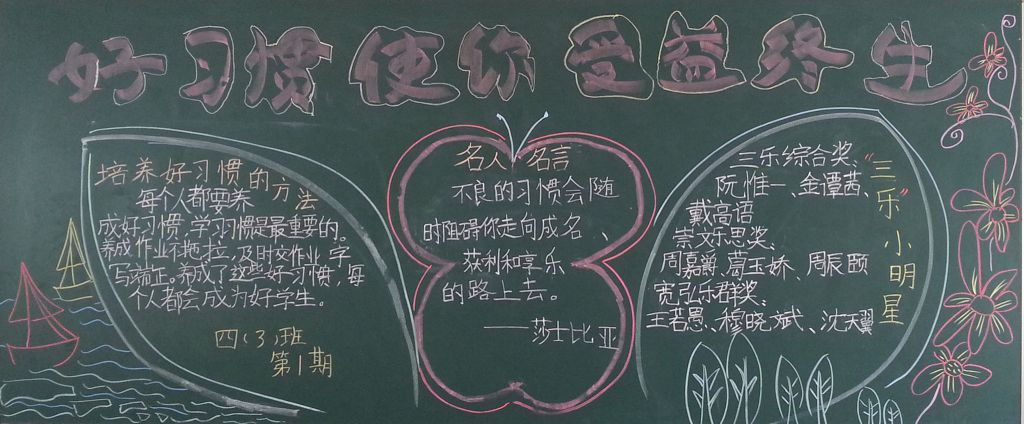 好习惯使你受益终生
培养好习惯的方法
每个人都要养
成好习惯，学习习惯是最重要的。
养成作业不拖拉，及时交作业，字
写端正。养成了这些好习惯，每
个人都会成为好学生。
四（3）班
第1期
名人名言
不良的习惯会随
时阻碍你走向成名、
获利和享乐
的路上去。
——莎士比亚
“三乐”小明星
三乐综合奖：
阮惟一、金谭茜、
戴高语
崇文乐思奖：
周嘉爵、葛玉娇、周辰颐
宽弘乐群奖：
王若愚、穆晓斌、沈天翼